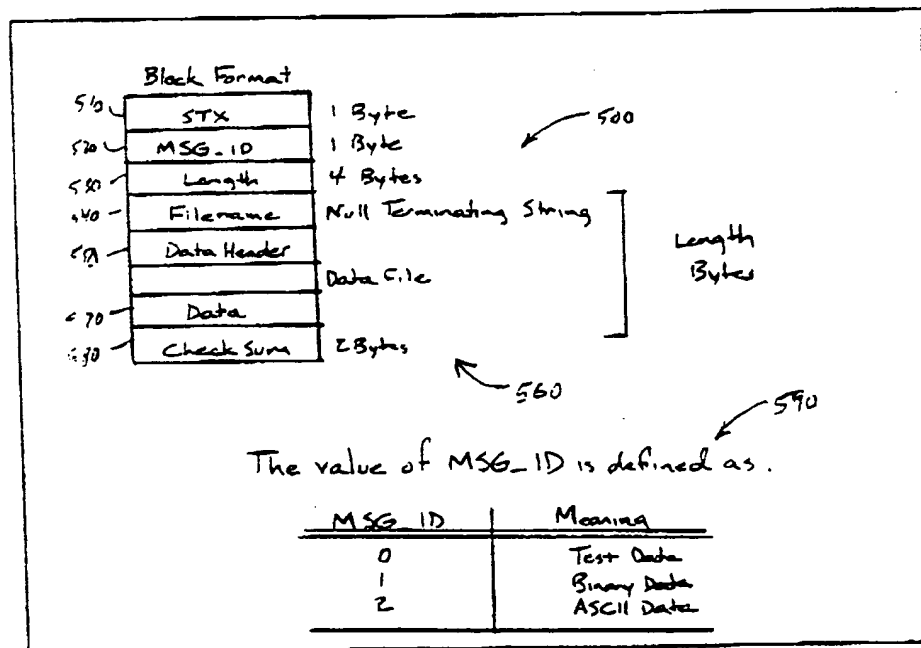 Block Format
510 STX 1 Byte
520 MSG_ID 1 Byte
500
530 Length 4 Bytes
540 Filename Null Terminating String
Data Header
Length
Bytes
Data File
Data
Check Sum 2 Bytes
560
590
The value of MSG_ID is defined as.
MSG_ID Meaning
0 Test Data
1 Binary Data
2 ASCII Data